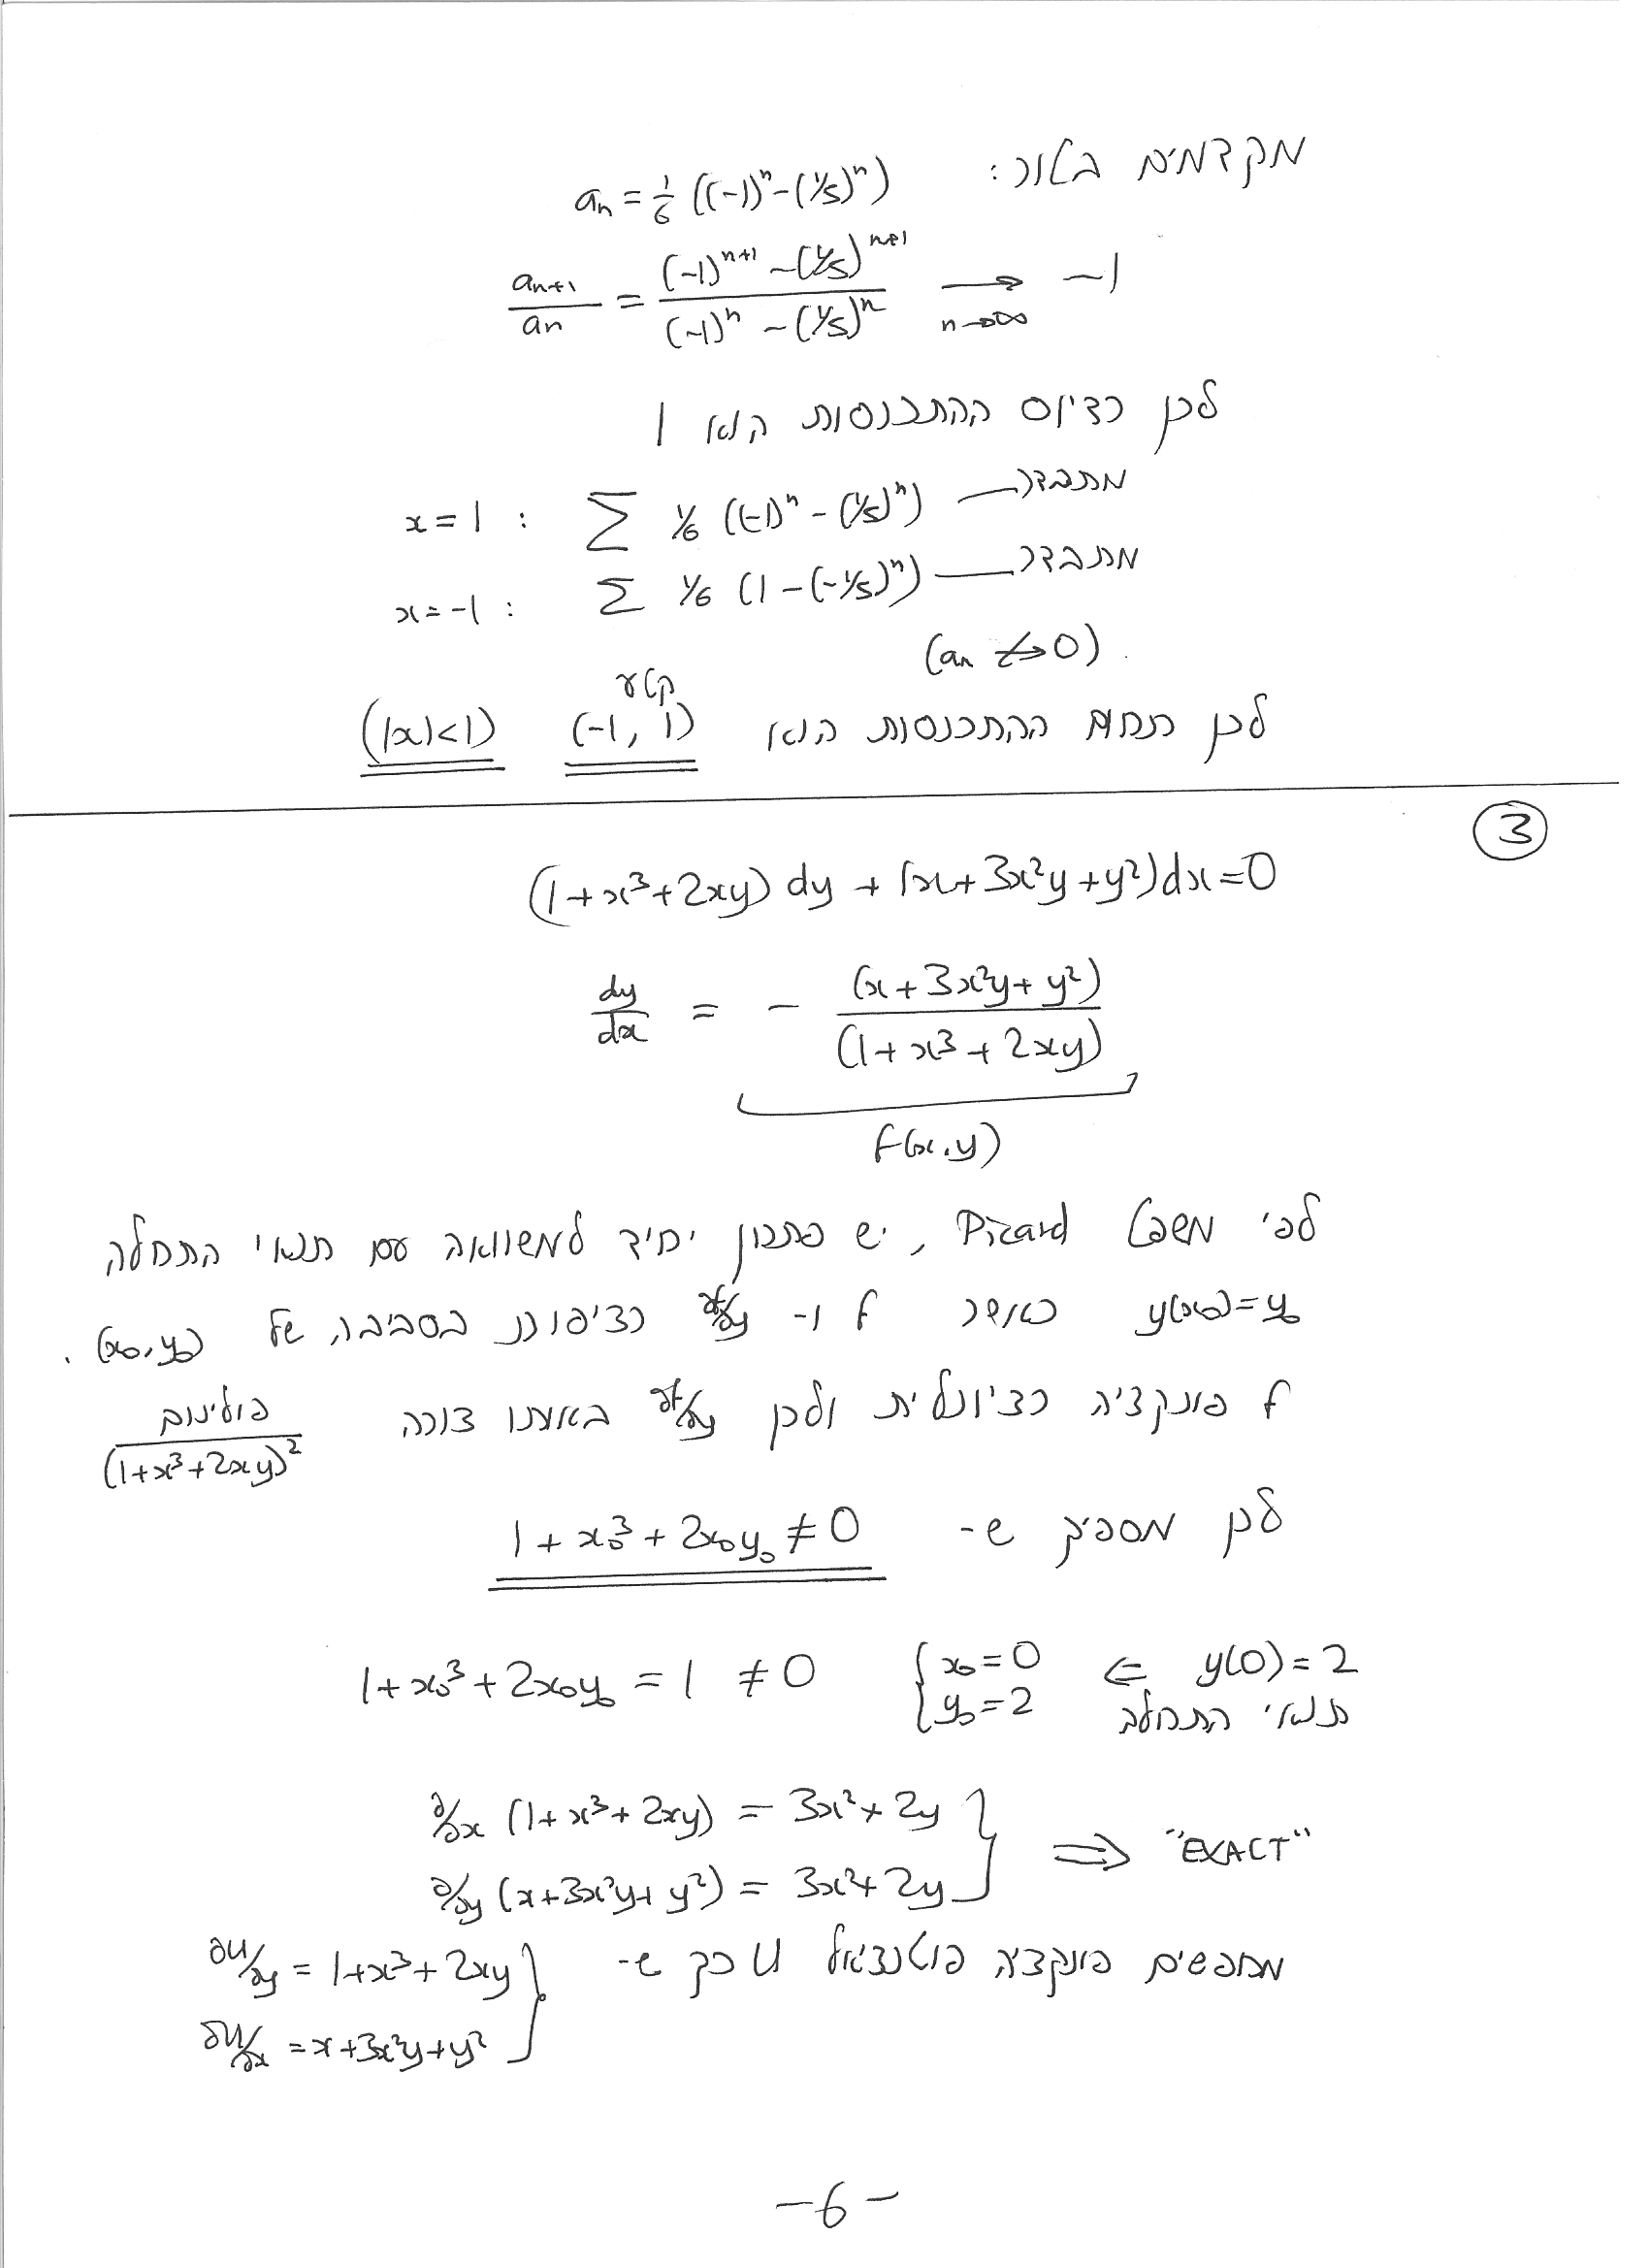 מקדמים בטור: aₙ = 1/6 ((-1)ⁿ - (1/5)ⁿ)
aₙ₊₁/aₙ = ((-1)ⁿ⁺¹ - (1/5)ⁿ⁺¹)/((-1)ⁿ - (1/5)ⁿ) → -1 n→∞
לכן רדיוס ההתכנסות הוא 1
x=1 : Σ 1/6 ((-1)ⁿ - (1/5)ⁿ) — מתבדר
x=-1 : Σ 1/6 (1 - (-1/5)ⁿ) — מתבדר
(aₙ ↛ 0).
לכן תחום ההתכנסות הוא רק (-1, 1) (|x|<1)
③
(1+x³+2xy) dy + (x+3x²y+y²)dx=0
dy/dx = - (x+3x²y+y²)/(1+x³+2xy)
f(x,y)
לפי משפט Picard, יש פתרון יחיד למשוואה עם תנאי התחלה
y(x₀)=y₀ כאשר f ו- ∂f/∂y רציפות בסביבה של (x₀,y₀).
f פונקציה רציונלית ולכן ∂f/∂y באותו צורה פולינום/(1+x³+2xy)²
לכן מספיק ש- 1+x₀³+2x₀y₀ ≠ 0
y(0)=2 ⇐ {x₀=0 1+x₀³+2x₀y₀ = 1 ≠ 0
תנאי התחלה {y₀=2
∂/∂x (1+x³+2xy) = 3x²+2y
∂/∂y (x+3x²y+y²) = 3x²+2y } ⟹ "EXACT"
מחפשים פונקציה פוטנציאל U כך ש- ∂U/∂y = 1+x³+2xy
∂U/∂x = x+3x²y+y² }
-6-